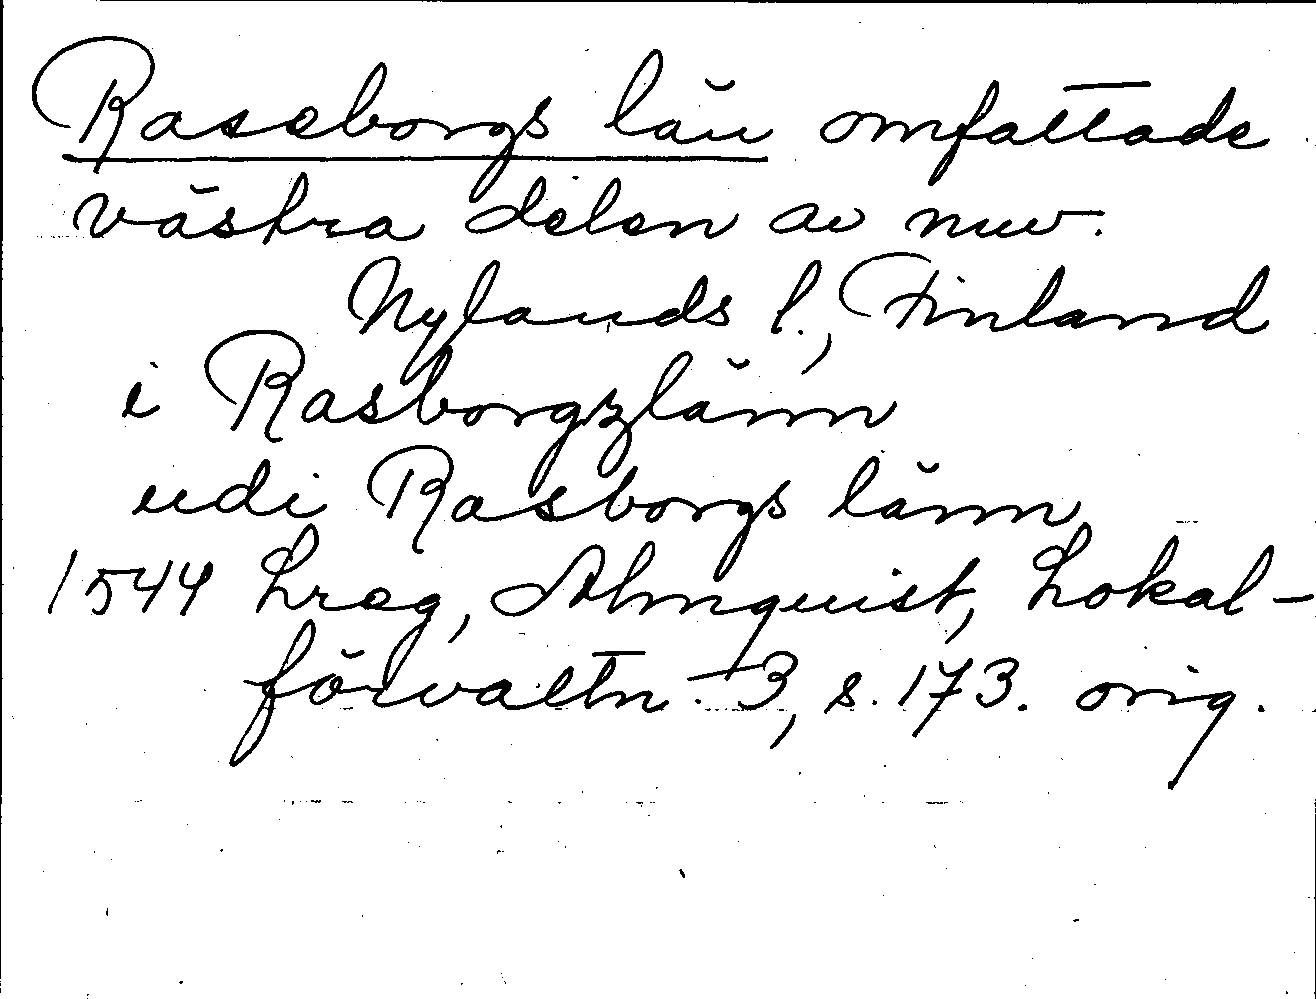 Raseborgs län omfattade
västra delen av nuv.
Nylands l., Finland
i Rasborgzlänn
udi Rasborgs länn
1544 Lreg, Almquist, Lokal-
förvaltn. 3, s. 173. orig.